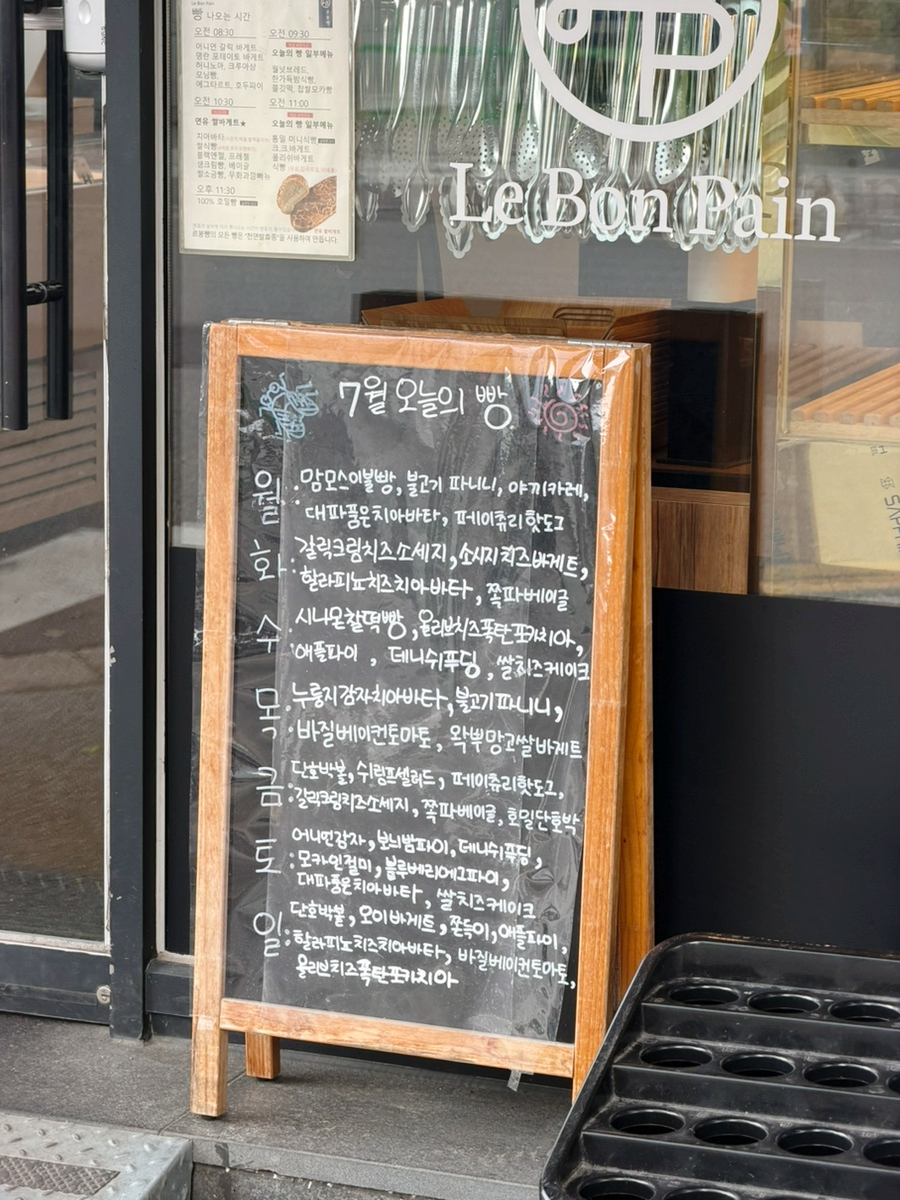 Le Bon Pain
빵 나오는 시간
오전 08:30
아니면 갈릭 바게트
명란 포테이토 바게트
허니노아, 크루아상
모닝빵,
에그타르트, 호두파이
오전 09:30
오늘의 빵 일부메뉴
월넛브레드,
한가득밤식빵,
오전 10:30
연유 쌀바게트★
치아바타
쌀식빵
블랙엔젤, 프레첼
생크림빵, 베이글
쌀소금빵, 무화과깜빠뉴
오전 11:00
오늘의 빵 일부메뉴
통밀 미니식빵
크.크.바게트
플러쉬바게트
식빵
오후 11:30
100% 호밀빵
르봉뺑의 모든 빵은 *천연발효종*을 사용하여 만듭니다.
Le Bon Pain
7월 오늘의 빵
월 : 맘모스이불빵, 불고기 파니니, 야끼카레,
대파품은치아바타, 페이츄리핫도그
화 : 갈릭크림치즈소세지, 소시지치즈바게트,
할라피뇨치즈치아바타, 쪽파베이글
수 : 시나몬찰떡빵, 올리브치즈폭탄포카치아,
애플파이, 데니쉬푸딩, 쌀치즈케이크
목 : 누룽지감자치아바타, 불고기파니니,
바질베이컨토마토, 왁뿌망고쌀바게트
금 : 단호박볼, 쉬림프샐러드, 페이츄리핫도그,
갈릭크림치즈소세지, 쪽파베이글, 호밀단호박
토 : 어니언감자, 보늬밤파이, 데니쉬푸딩,
모카인절미, 블루베리에그파이,
대파품은치아바타, 쌀치즈케이크
일 : 단호박볼, 오이바게트, 쫀득이, 애플파이,
할라피뇨치즈치아바타, 바질베이컨토마토,
올리브치즈폭탄포카치아